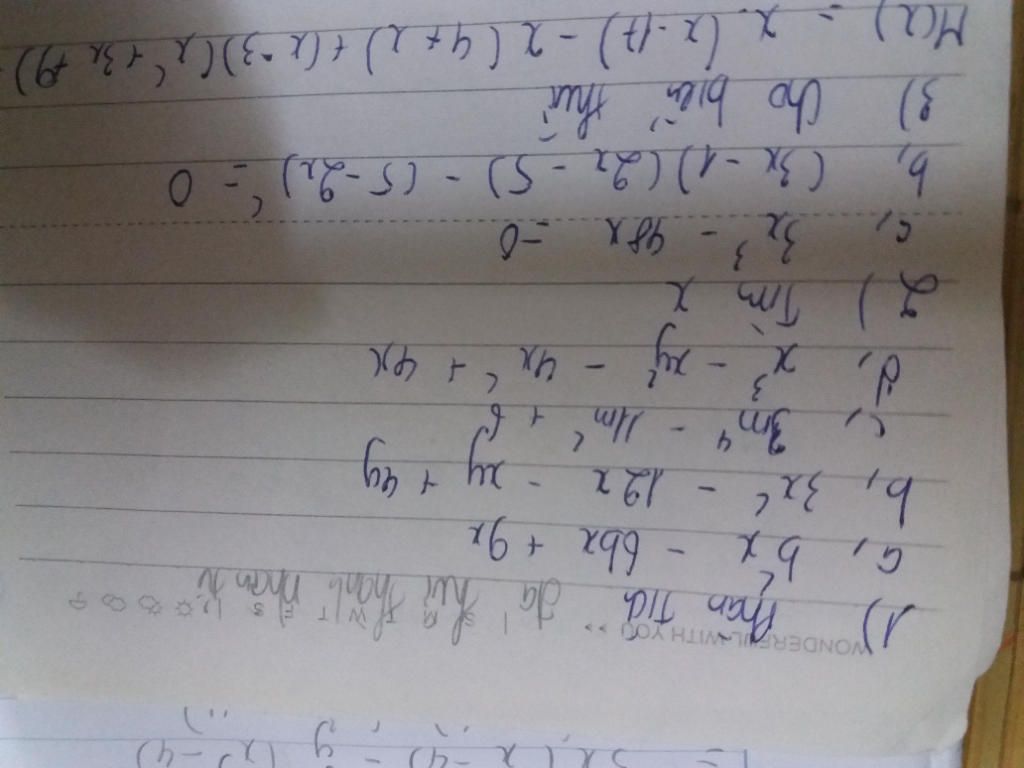 WONDERFUL WITH YOU
1) Phân tích đa thức thành nhân
a, b²x - 6bx + 9x
b, 3x² - 12x - xy + 4y
c, 3m⁴ - 11m² + 6
d, x³ - xy² - 4x² + 4x
2) Tìm x
c, 3x³ - 48x = 0
b, (3x - 1)(2x - 5) - (5 - 2x)² = 0
3) Cho biểu thức
M(x) = x(x-17) - x(4+x) + (x-3)(x² + 3x + 9)